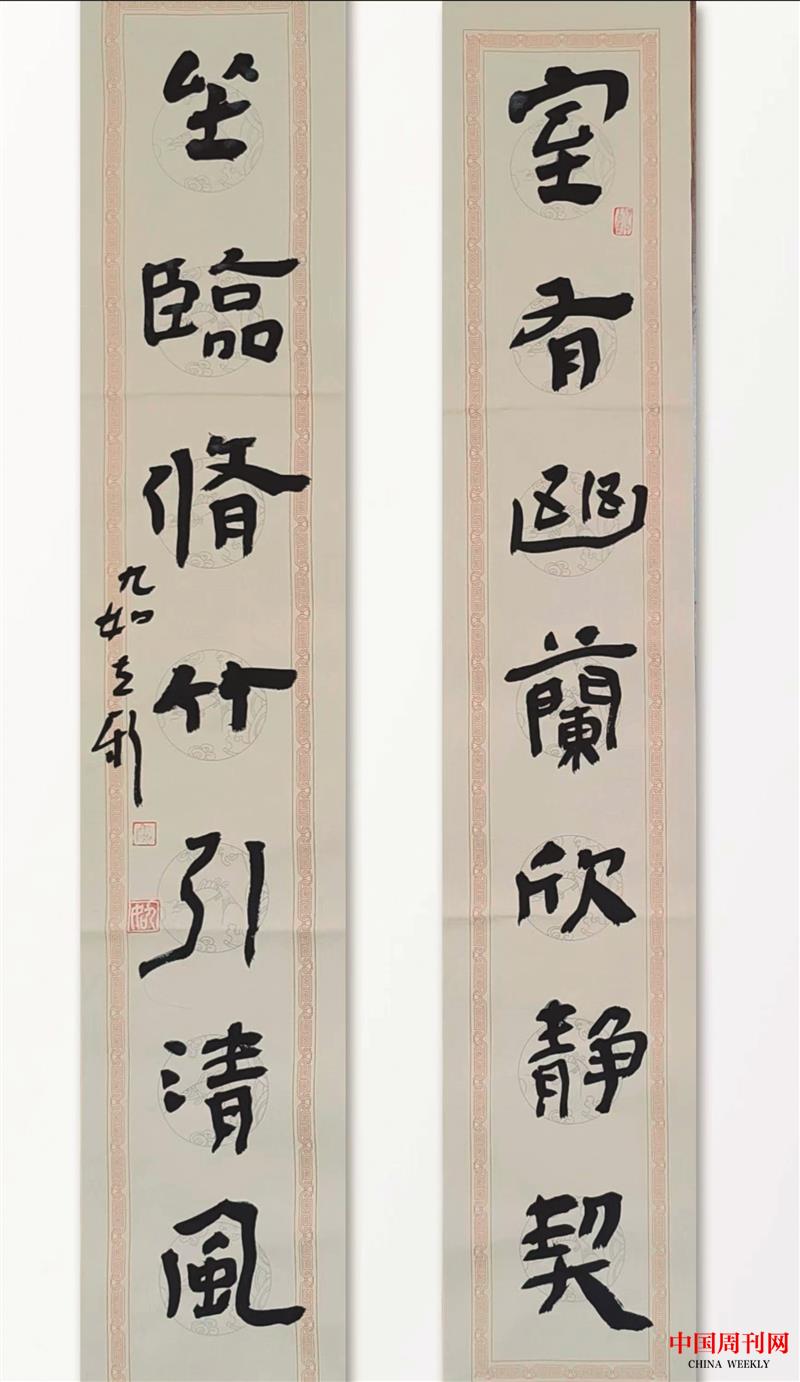 室有幽蘭欣静契
坐臨脩竹引清風
九如
中国周刊网
CHINA WEEKLY